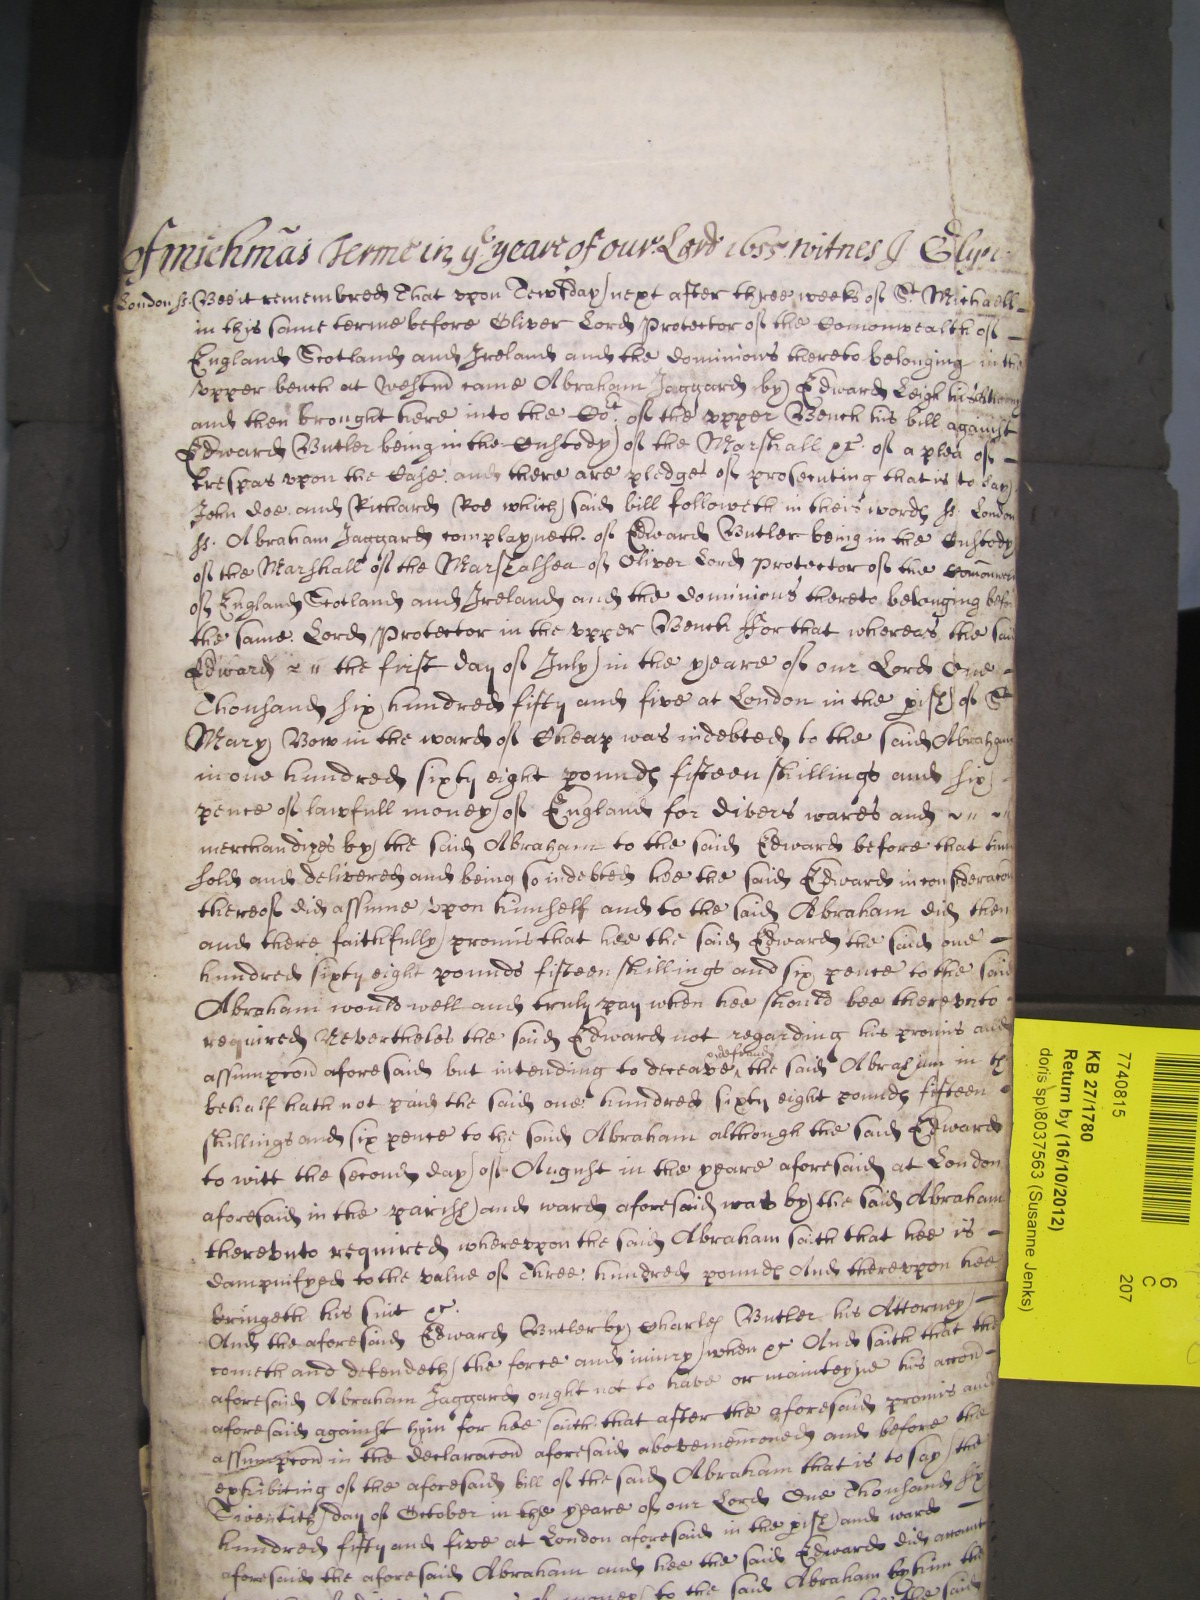 Of Michmas Terme in ye yeare of our Lord 1655 witnes J Glyn
London ss. Bee it remembred That upon Tewsday next after three weekes of St Michaell
in this same terme before Oliver Lord Protector of the Comonwealth of
England Scotland and Ireland and the dominions thereto belonging in the
upper bench at Westm came Abraham Jaggard by Edward Leigh his Attorney
and then brought here into the Cot of the upper Bench his bill against
Edward Butler being in the Custody of the Marshall &c of a plea of
trespas upon the Case and there are pledges of prosecuting that is to say
John Doe and Richard Roe which said bill followeth in theis words ss London
ss. Abraham Jaggard complayneth of Edward Butler being in the Custody
of the Marshall of the Marshalsea of Oliver Lord Protector of the Comonwe
of England Scotland and Ireland and the dominions thereto belonging befo
the same Lord Protector in the upper Bench For that whereas the said
Edward the first day of July in the yeare of our Lord One
Thousand six hundred fifty and five at London in the pish of St
Mary Bow in the ward of Cheap was indebted to the said Abraham
in one hundred sixty eight pounds fifteen shillings and six
pence of lawfull money of England for divers wares and
merchandizes by the said Abraham to the said Edward before that time
sold and delivered and being so indebted hee the said Edward in consideracon
thereof did assume upon himself and to the said Abraham did then
and there faithfully promis that hee the said Edward the said one
hundred sixty eight pounds fifteen shillings and six pence to the said
Abraham would well and truly pay when hee should bee thereunto
required Nevertheles the said Edward not regarding his promis and
assumpcon aforesaid but intending to deceave & defraud the said Abraham in th
behalf hath not paid the said one hundred sixty eight pounds fifteen
shillings and six pence to the said Abraham although the said Edward
to witt the second day of August in the yeare aforesaid at London
aforesaid in the parish and ward aforesaid was by the said Abraham
thereunto required whereupon the said Abraham saith that hee is
dampnifyed to the value of Three hundred pounds And thereupon hee
bringeth his suit &c.
And the aforesaid Edward Butler by Charles Butler his Attorney
cometh and defendeth the force and iniury when &c And saith that the
aforesaid Abraham Jaggard ought not to have or mainteyne his accon
aforesaid against him for hee saith that after the aforesaid promis and
assumpcon in the declaracon aforesaid abovemenconed and before the
exhibiting of the aforesaid bill of the said Abraham that is to say the
Twentith day of October in the yeare of our Lord One Thousand six
hundred fifty and five at London aforesaid in the pish and ward
aforesaid the aforesaid Abraham and hee the said Edward did account
money to the said Abraham by him the
the said
6
C
207
7740815
KB 27/1780
Return by (16/10/2012)
doris sp\8037563 (Susanne Jenks)